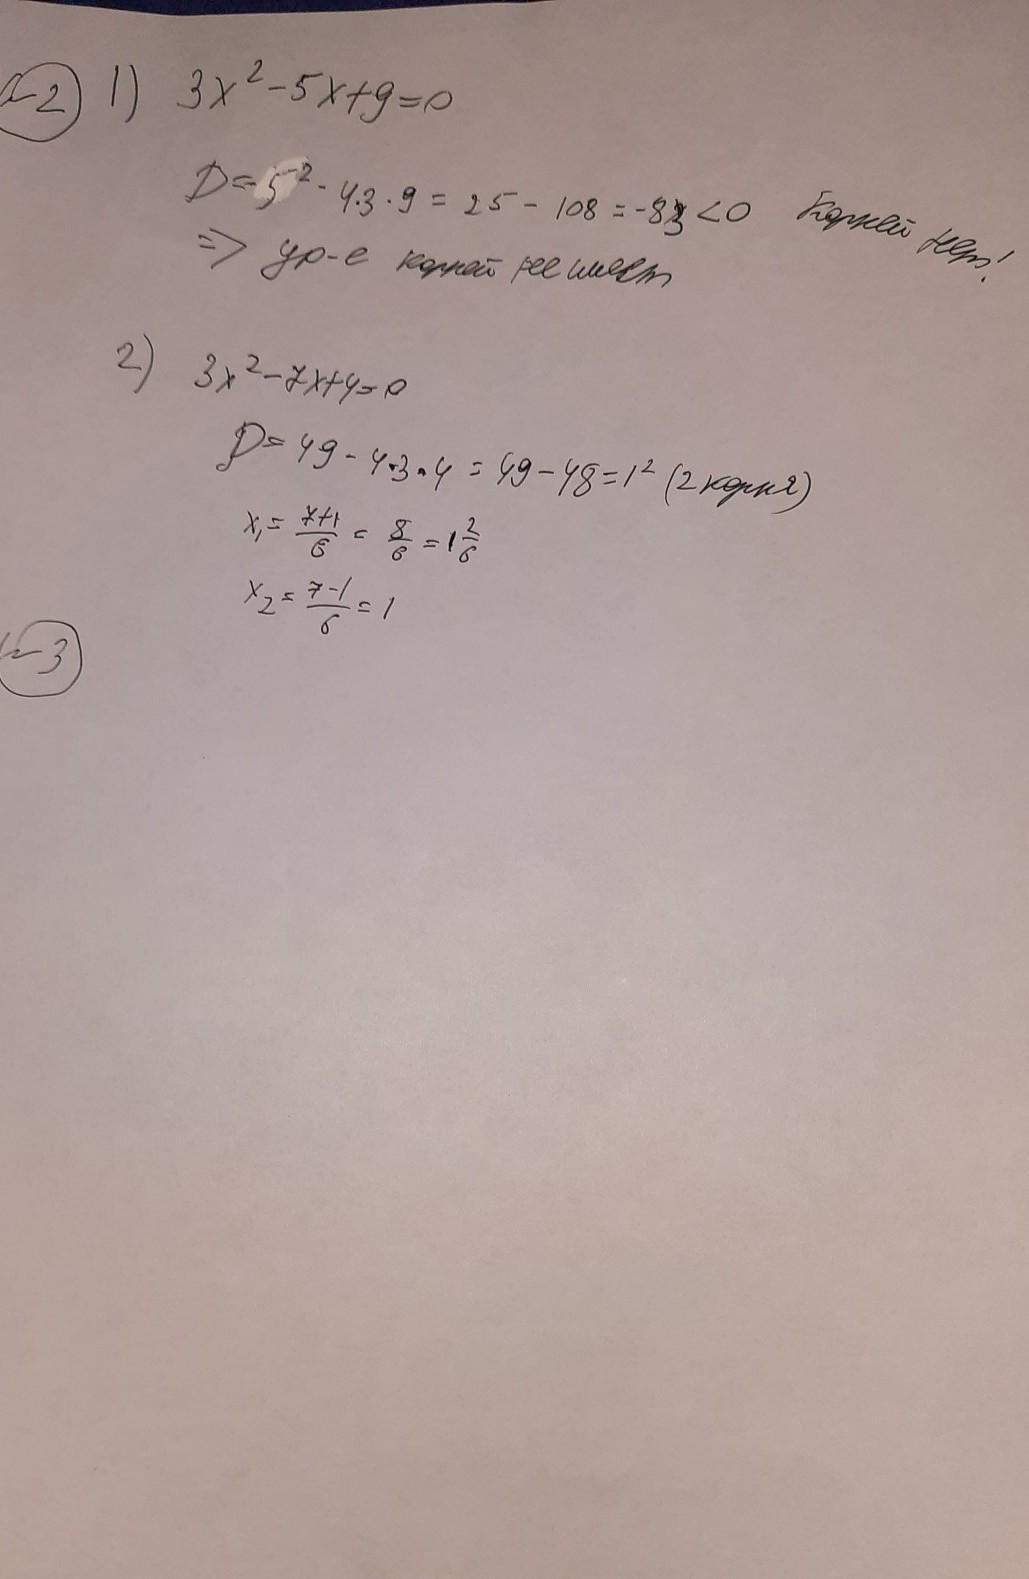 №2 1) 3x²-5x+9=0
D=5²-4·3·9=25-108=-83<0 Корней нет!
=> ур-е корней не имеет
2) 3x²-7x+4=0
D=49-4·3·4=49-48=1² (2 корня)
x₁=7+1/6=8/6=1 2/6
x₂=7-1/6=1
№3